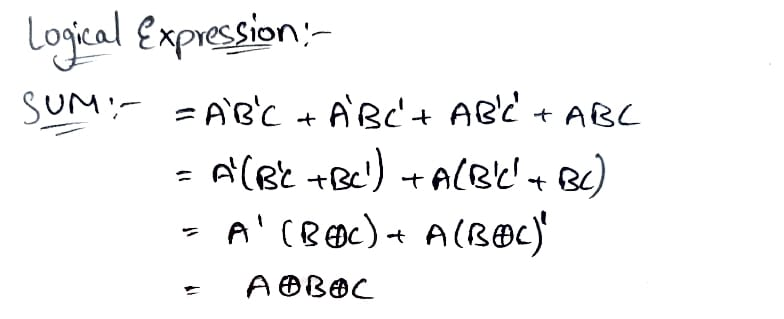 Logical Expression:-
SUM:- = A'B'C + A'BC' + AB'C' + ABC
= A'(B'C + BC') + A(B'C' + BC)
= A' (B⊕C) + A(B⊕C)'
= A⊕B⊕C